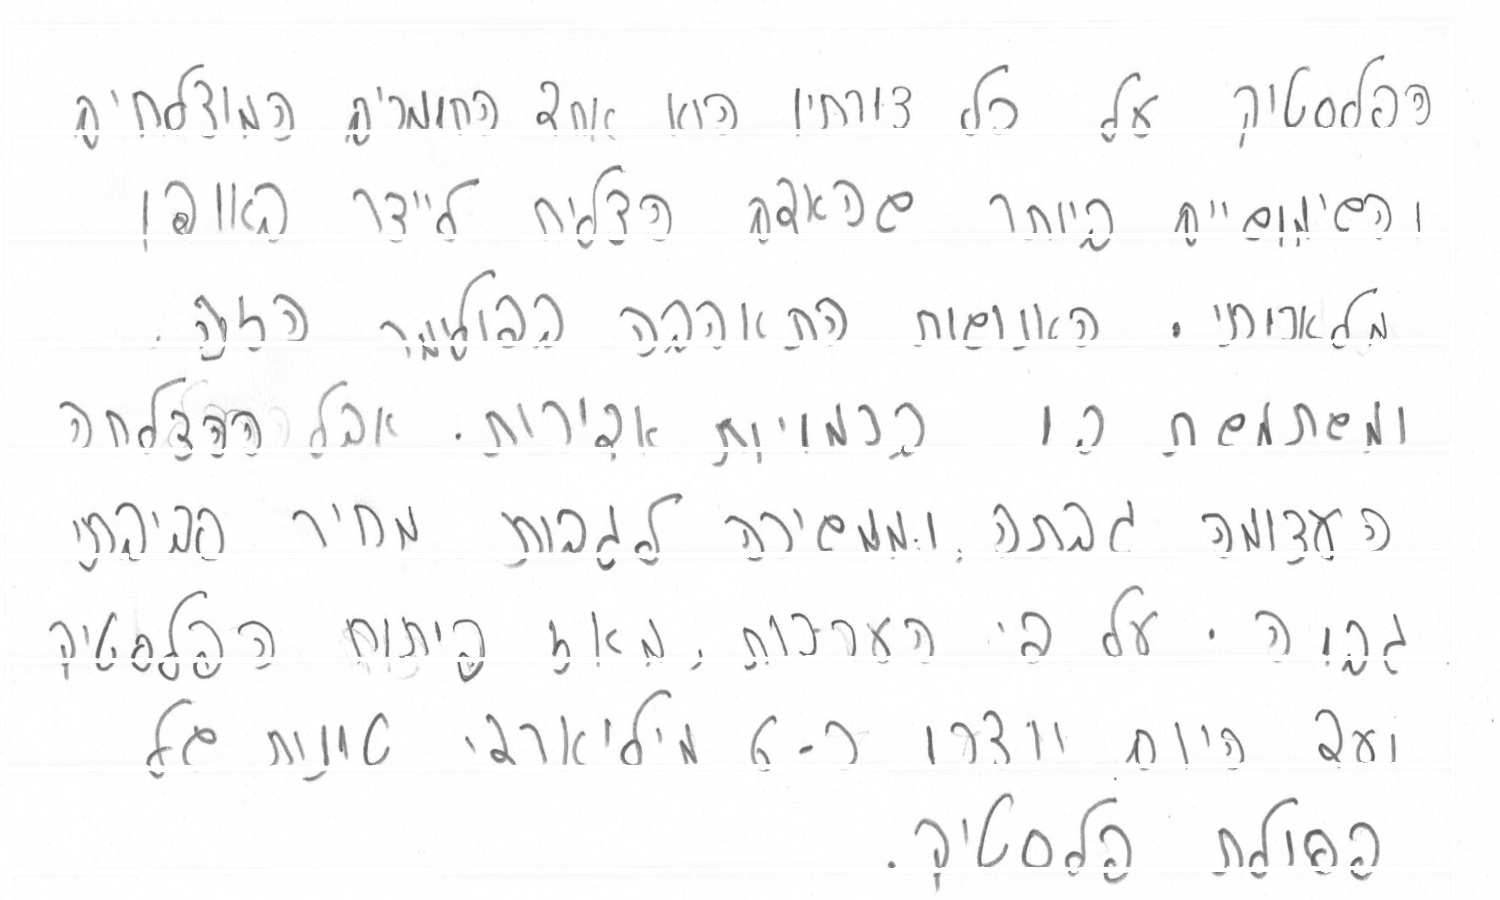 הפלסטיק על כל צורותיו הוא אחד החומרים המוצלחים
והשימושיים ביותר שהאדם הצליח לייצר באופן
מלאכותי. האנושות התאהבה בפולימר הזה.
ומשתמשת בו בכמויות אדירות. אבל ההצלחה
העצומה גבתה, וממשיכה לגבות מחיר סביבתי
גבוה. על פי הערכות, מאז פיתוח הפלסטיק
ועד היום יוצרו כ-6 מיליארדי טונות של
פסולת פלסטיק.